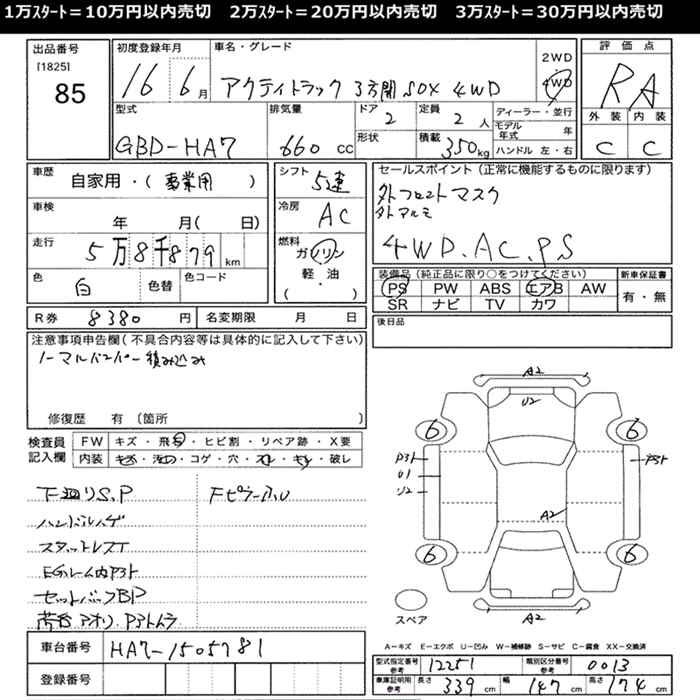 1万ｽﾀｰﾄ＝10万円以内売切　2万ｽﾀｰﾄ＝20万円以内売切　3万ｽﾀｰﾄ＝30万円以内売切
出品番号 [1825] 85
初度登録年月 16 6月
車名・グレード アクティトラック 3方開 SDX 4WD
2WD 4WD
評価点 RA
外装 C 内装 C
型式 GBD-HA7
排気量 660 CC
ドア 2
形状
定員 2人
積載 350kg
ディーラー・並行
モデル年式 年
ハンドル 左・右
車歴 自家用・(事業用)
車検 年 月( 日)
走行 5万8千879 km
色 白 色替 色コード
シフト 5速
冷房 AC
燃料 ガソリン 軽・油 ( )
セールスポイント(正常に機能するものに限ります)
外フロントマスク
外アルミ
4WD.AC.PS
装備品(純正品に限り○をつけてください)
PS PW ABS エアB AW
SR ナビ TV カワ
新車保証書 有・無
R券 8380 円 名変期限 月 日
後日品
注意事項申告欄(不具合内容等は具体的に記入して下さい)
ノーマルバンパー積み込み
修復歴 有 〔箇所 〕
検査員記入欄
FW キズ・飛石・ヒビ割・リペア跡・X要
内装 キズ・汚れ・コゲ・穴・スレ・キレ・破レ
下廻りS.P
Fピラー小U
ハンドルハゲ
スタットレスT
セットバックBP
車台番号 HA7-1505781
登録番号
A2
U2
6
6
P3ﾄ
U1
U2
P3ﾄ
A2
6
6
A2
スペア
A－キズ E－エクボ U－凹み W－補修跡 S－サビ C－腐食 XX－交換済
型式指定番号 参考 12251 類別区分番号 参考 0013
車庫証明用 参考 長さ 339 cm 幅 147 cm 高さ 174 cm